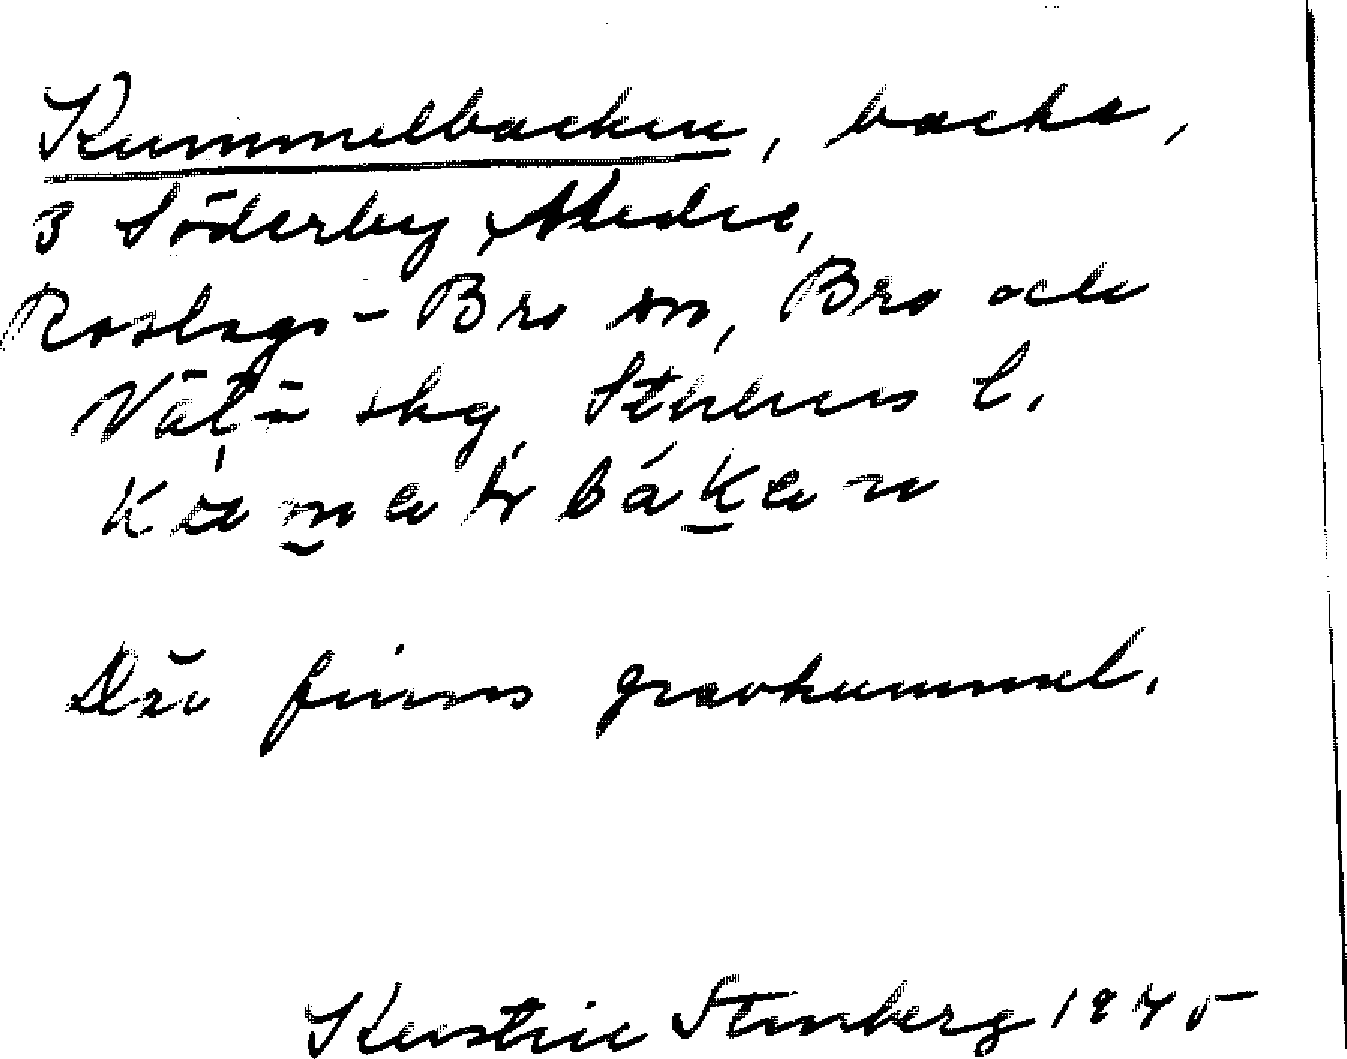 Kummelbacken, backe,
3 Söderby, Nedre,
Roslags-Bro sn, Bro och
Vätö skg, Sthlms l.
Där finns gravkummel.
Kerstin Stenberg 1945